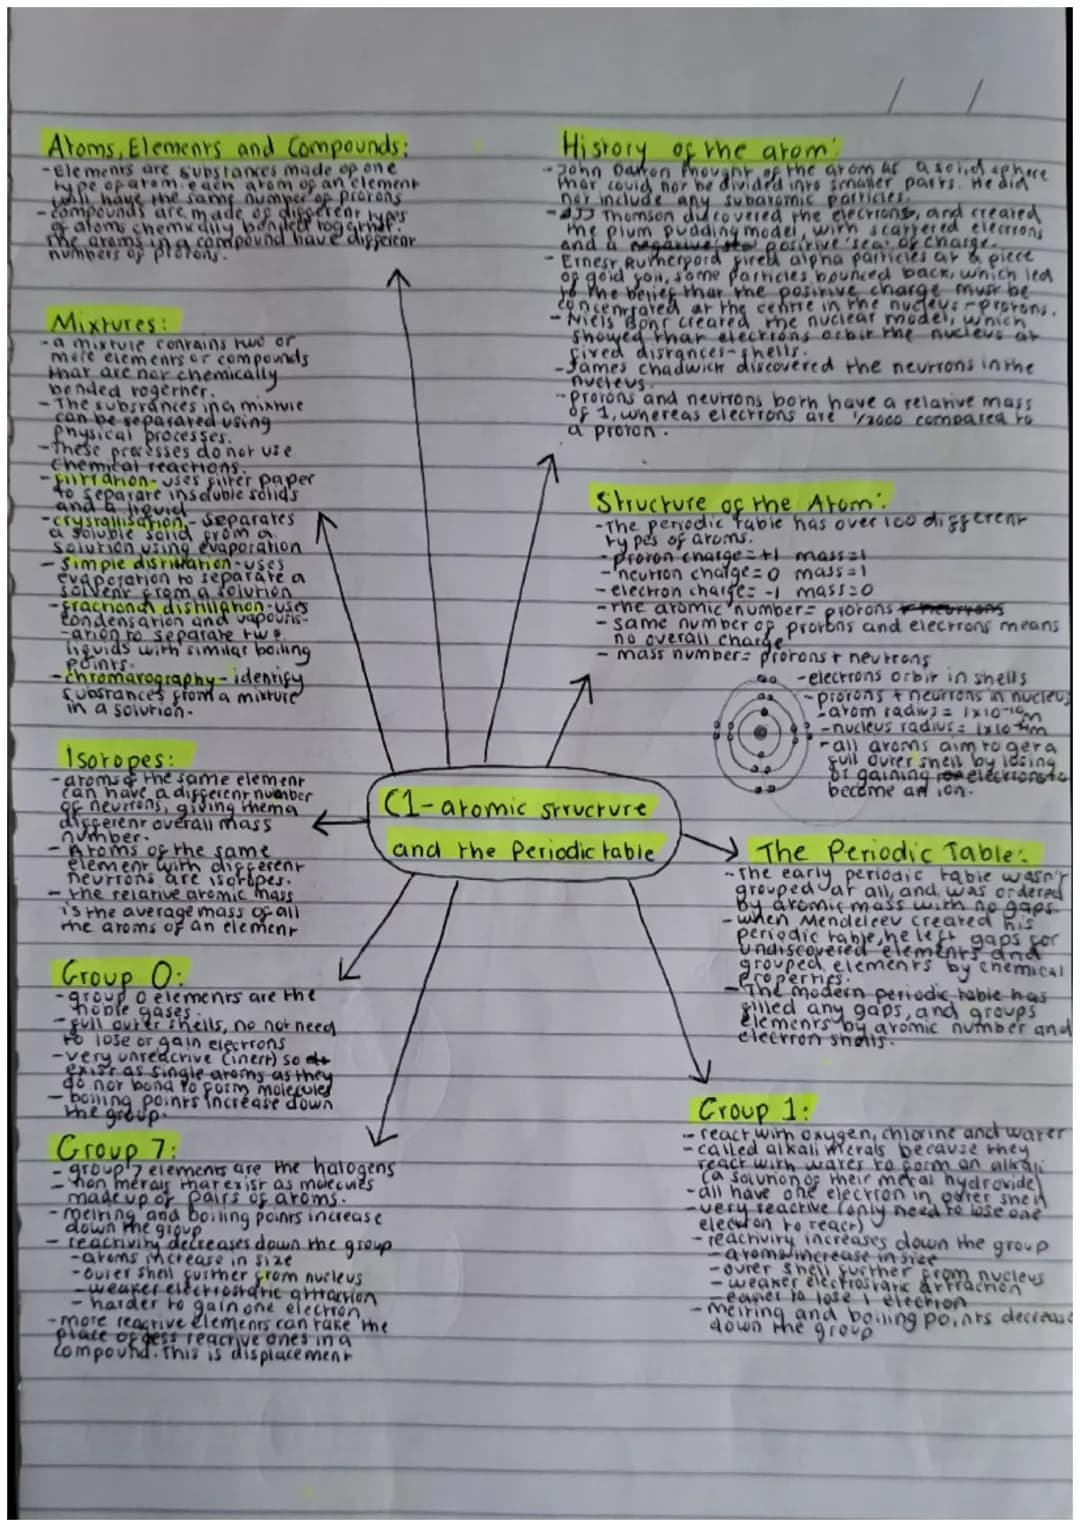 Atoms, Elements and Compounds:
- Elements are substances made of one
type of atom. each atom of an element
will have the same number of protons
- compounds are made of different types
of atoms chemically bonded together.
The atoms in a compound have different
numbers of protons.
Mixtures:
- a mixture contains two or
more elements or compounds
that are not chemically
bonded together.
- The substances in a mixture
can be separated using
physical processes.
- These processes do not use
chemical reactions.
- filtration - uses filter paper
to separate insoluble solids
and a liquid
- crystallisation - separates
a soluble solid from a
solution using evaporation
- simple distillation - uses
evaporation to separate a
solvent from a solution
- fractional distillation - uses
condensation and vapouris-
-ation to separate two
liquids with similar boiling
points.
- chromatography - identify
substances from a mixture
in a solution.
Isotopes:
- atoms of the same element
can have a different number
of neutrons, giving them a
different overall mass
number.
- Atoms of the same
element with different
neutrons are isotopes.
- the relative atomic mass
is the average mass of all
the atoms of an element
Group 0:
- group 0 elements are the
noble gases.
- full outer shells, no not need
to lose or gain electrons
- very unreactive (inert) so
exist as single atoms as they
do not bond to form molecules
- boiling points increase down
the group.
Group 7:
- group 7 elements are the halogens
- non metals that exist as molecules
made up of pairs of atoms.
- melting and boiling points increase
down the group
- reactivity decreases down the group
- atoms increase in size
- outer shell further from nucleus
- weaker electrostatic attraction
- harder to gain one electron
- more reactive elements can take the
place of less reactive ones in a
compound. This is displacement
C1 - atomic structure
and the Periodic table
History of the atom:
- John Dalton thought of the atom as a solid sphere
that could not be divided into smaller parts. He did
not include any subatomic particles.
- JJ Thomson discovered the electrons, and created
the plum pudding model, with scattered electrons
and a negative sea positive 'sea' of charge.
- Ernest Rutherford fired alpha particles at a piece
of gold foil, some particles bounced back, which led
to the belief that the positive charge must be
concentrated at the centre in the nucleus - protons.
- Niels Bohr created the nuclear model, which
showed that electrons orbit the nucleus at
fixed distances - shells.
- James chadwick discovered the neutrons in the
nucleus.
- protons and neutrons both have a relative mass
of 1, whereas electrons are 1/2000 compared to
a proton.
Structure of the Atom:
- The periodic table has over 100 different
types of atoms.
- proton charge = +1 mass = 1
- neutron charge = 0 mass = 1
- electron charge = -1 mass = 0
- the atomic number = protons + neutrons
- same number of protons and electrons means
no overall charge
- mass number = protons + neutrons
- electrons orbit in shells
- protons + neutrons in nucleus
- atom radius = 1x10
- nucleus radius = 1x10
- all atoms aim to get a
full outer shell by losing
or gaining electrons to
become an ion.
The Periodic Table:
- The early periodic table wasn't
grouped at all, and was ordered
by atomic mass with no gaps
- when Mendeleev created his
periodic table, he left gaps for
undiscovered elements and
grouped elements by chemical
properties.
- The modern periodic table has
filled any gaps, and groups
elements by atomic number and
electron shells.
Group 1:
- react with oxygen, chlorine and water
- called alkali metals because they
react with water to form an alkali
(a solution of their metal hydroxide)
- all have one electron in outer shell
- very reactive (only need to lose one
electron to react)
- reactivity increases down the group
- atoms increase in size
- outer shell further from nucleus
- weaker electrostatic attraction
- easier to lose 1 electron
- melting and boiling points decrease
down the group